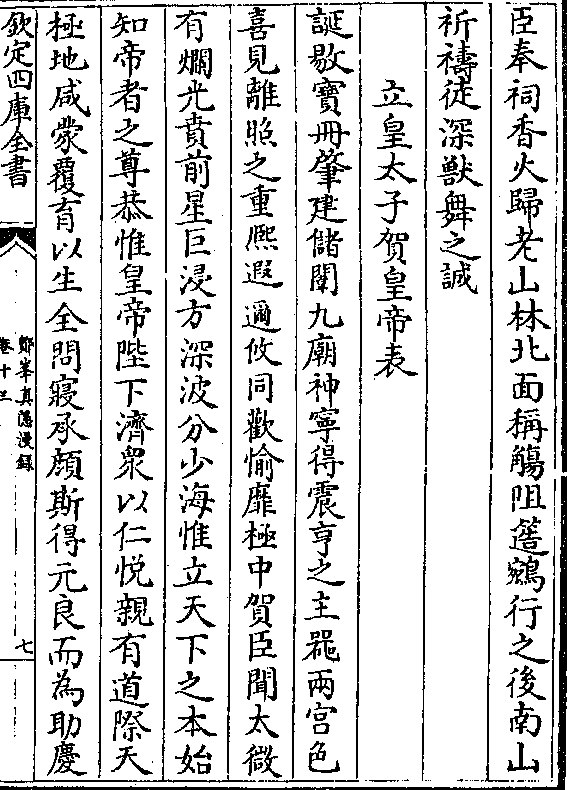 臣奉祠香火歸老山林北面稱觴阻簉鵷行之後南山
祈禱徒深獸舞之誠
立皇太子賀皇帝表
誕敭寶冊肇建儲闈九廟神寧得震亨之主噐兩宫色
喜見離照之重熈遐邇攸同歡愉靡極中賀臣聞太微
有爛光賁前星巨浸方深波分少海惟立天下之本始
知帝者之尊恭惟皇帝陛下濟衆以仁悦親有道際天
極地咸蒙覆育以生全問寢承顔斯得元良而為助慶
欽定四庫全書
鄮峯真隠漫録
卷十三
七